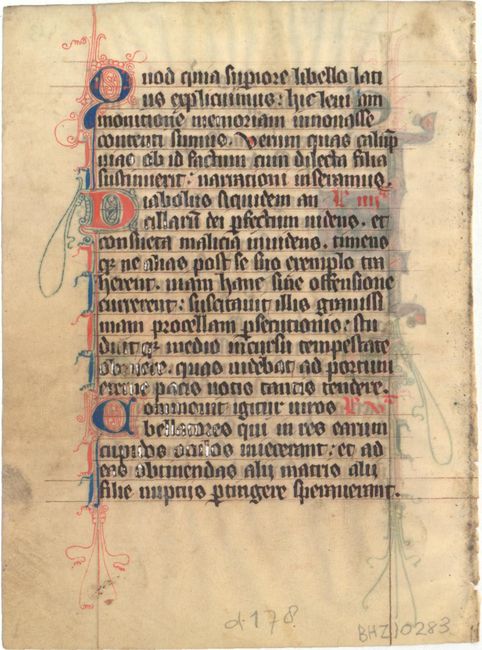 Quod quia supiore libello lati
us explicuimus: hic leui am
monitione memoriam innouasse
contenti sumus. Verum quas calūp
nias ob id factum cum dilecta filia
sustinuerit: narrationi inseramus.
Diabolus siquidem an
cillarū dei pfectum uidens. et
consueta malicia inuidens. timens
qȝ ne alias post se suo exemplo tra
herent. niam hanc siñe offensione
currerent: suscitauit illis grauissi
mam procellam psecutionis: stu
duit qȝ medio incursu tempestate
quas uidebat ad portum
pacis uotis tantis tendere.
Commouit igitur uiros
bellatores qui in res earum
cupidos oculos iniecerant: et ad
eas obtinendas alii matris alii
filie nuptiis ptingere sperauerant.
d.178.
BHZ10283